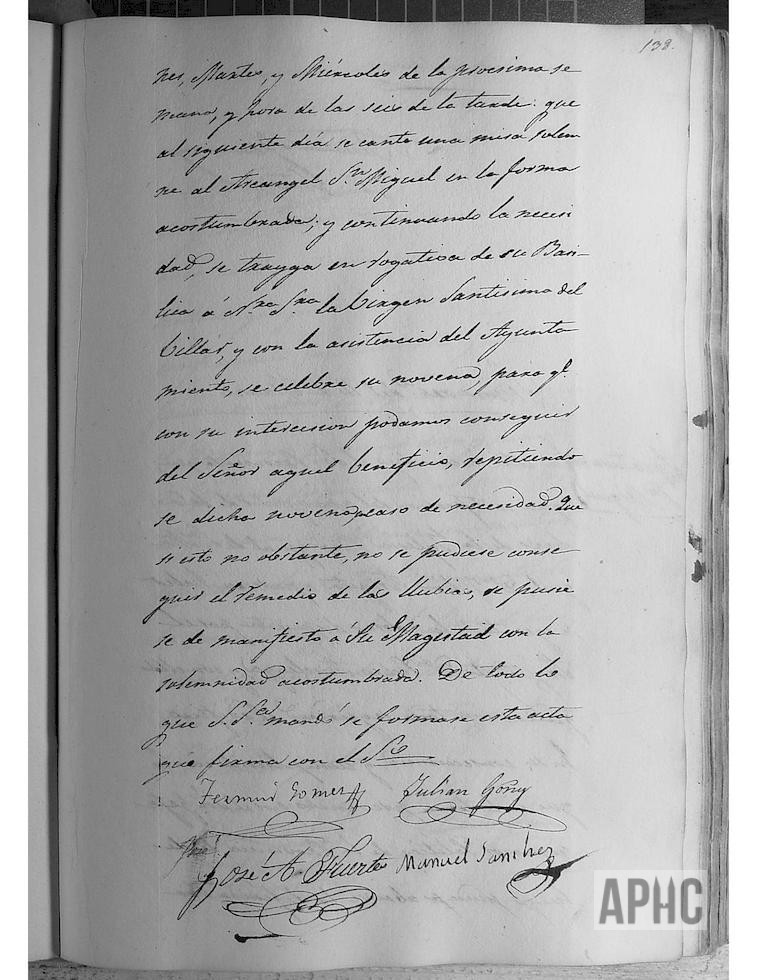 138.
nes, Martes, y Miércoles de la procsima se
mana, y hora de las seis de la tarde: que
al siguiente día se cante una misa solem
ne al Arcangel Sn. Miguel en la forma
acostumbrada; y continuando la necesi
dad, se trayga en rogativa de su Basi-
lica á Nra Sra la Virgen Santisima del
Villar, y con la asistencia del Ayunta
miento, se celebre su novena, para qe.
con su intercesion podamos conseguir
del Señor aquel beneficio, repitiendo
se dicha novena caso de necesidad. Que
si esto no obstante, no se pudiese conse
guir el remedio de las llubias, se pusie
se de manifiesto á Su Magestad con la
solemnidad acostumbrada. De todo lo
que S. Sa. mandó se formase esta acta
que firma con el Sío
Fermin Gomez Julian Goñy
José A. Fuertes Manuel Sanchez
APHC